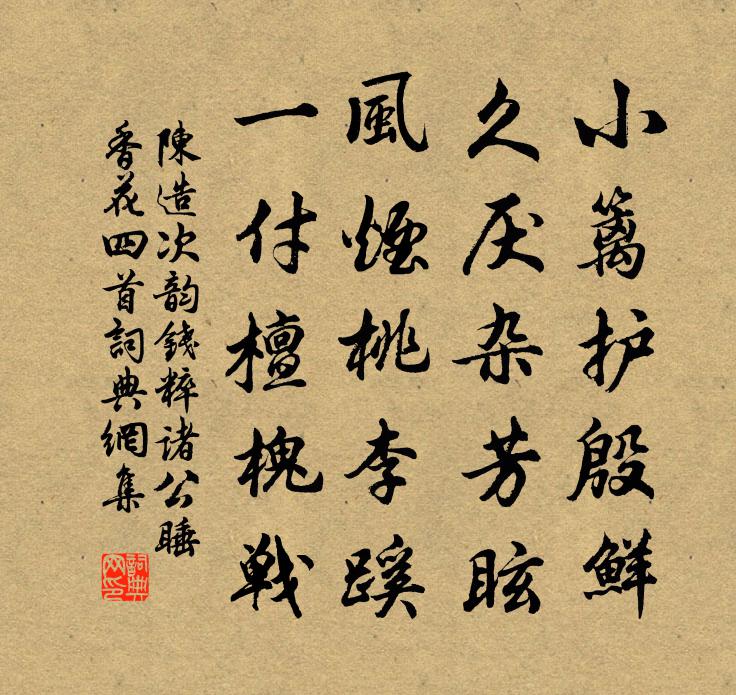 小篱护殷鮮
久厌杂芳眩
風煙桃李蹊
一付檀槐戦
陳造次韵錢粹诸公睡
香花四首詞典網集
詞典网印